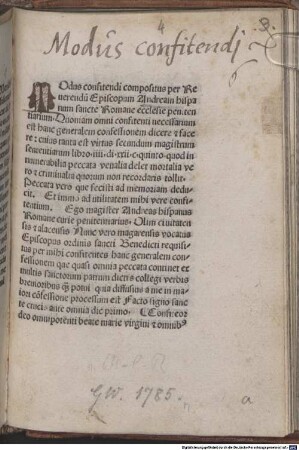 4
9.
Modus confitendj
MOdus confitendi compositus per Re
uerendū Episcopum Andream hispa
num sancte Romane ecclesie peniten
tiarium. Quoniam omni confitenti necessarium
est hanc generalem confessionem dicere ⁊ face
re: cuius tanta est virtus secundum magistrum
sententiarum libro .iiii. di. xxi. c. quinto. quod in
numerabilia peccata venalia delet mortalia ve
ro ⁊ criminalia quorum non recordaris tollit.
Peccata vero que fecisti ad memoriam dedu
cit. Et immo ad vtilitatem mihi vere confi
tentium. Ego magister Andreas hispanus
Romane curie penitentiarius. Olim ciuitaten
sis ⁊ alacensis. Nunc vero magarensis vocatus
Episcopus ordinis sancti Benedicti requisi
tus per mihi confitentes hanc generalem con
fessionem que quasi omnia peccata continet ex
multis sanctorum patrum dictis collegi verbis
breuioribus q̄ potui qua diffusius a me in ma
iori cōfessione processum est Facto signo sanc
te crucis ante omnia dic primo. ⸿Confiteor
deo omnipotenti beate marie virgini ⁊ omnibꝰ
GW. 1785.
a